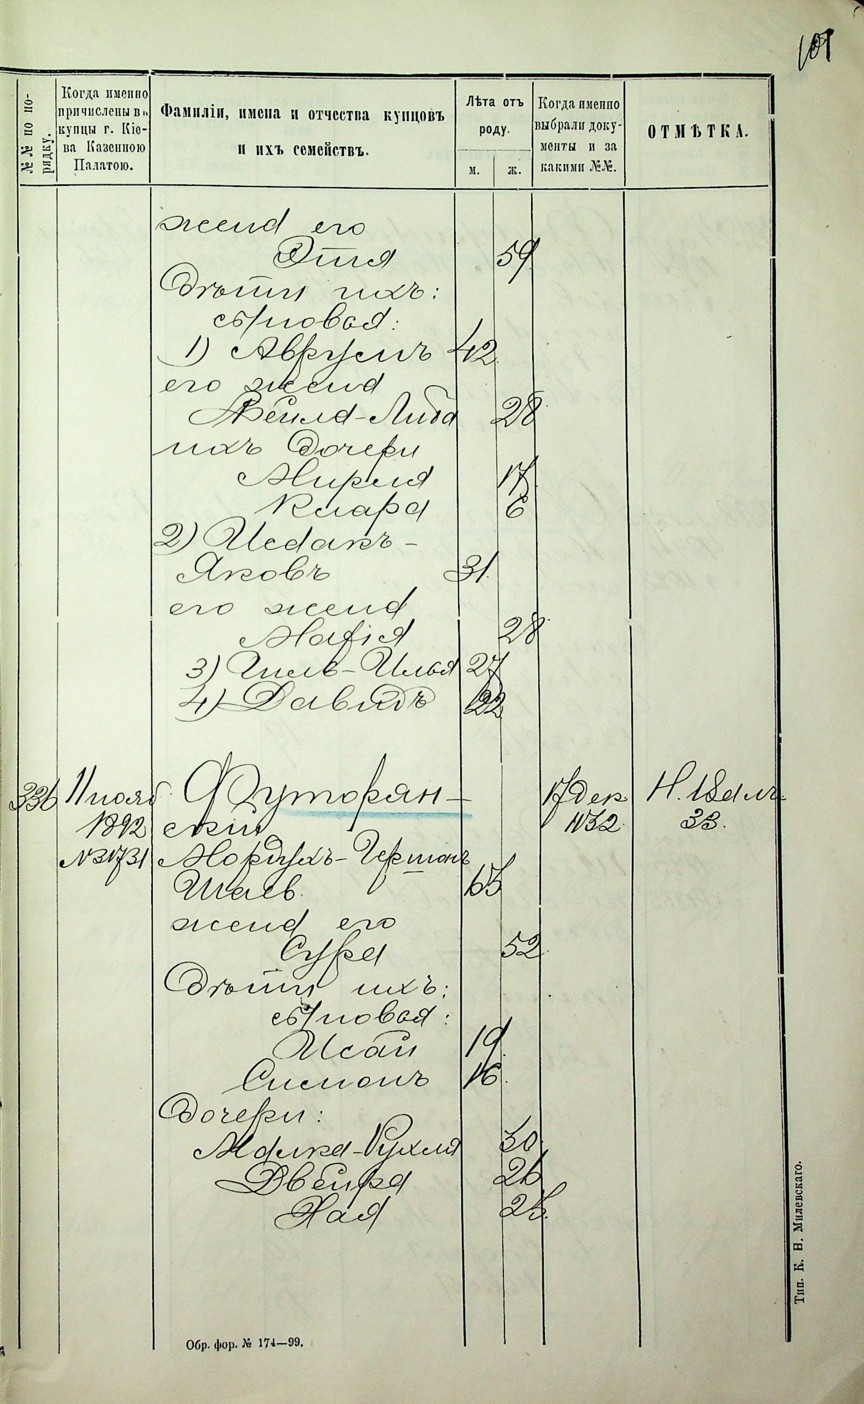 101
№№ по по-
рядку.
Когда именно
причислены въ
купцы г. Кіе-
ва Казенною
Палатою.
Фамиліи, имена и отчества купцовъ
и ихъ семействъ.
Лѣта отъ
роду.
м. ж.
Когда именно
выбрали доку-
менты и за
какими №№.
ОТМѢТКА.
жена его
Этя 59
Дѣти ихъ:
сыновья:
1) Аврумъ 42
его жена
Бейла-Либа 28
ихъ дочери
Мирля 17
Клара 6
2) Исаакъ-
Яковъ 31
его жена
Марія 28
3) Гиль-Илья 27
4) Давидъ 22
336 11 нояб Футорян- 17 дек
1892 скій 1132 33
№ 31731 Мордухъ-Гершонъ
Шаев. 65
жена его
Сура 52
Дѣти ихъ:
сыновья:
Исай 19
Симонъ 16
Дочери:
Малка-Рухля 30
Двейра 26
Хая 25
Обр. фор. № 174—99.
Тип. К. Н. Милевскаго.